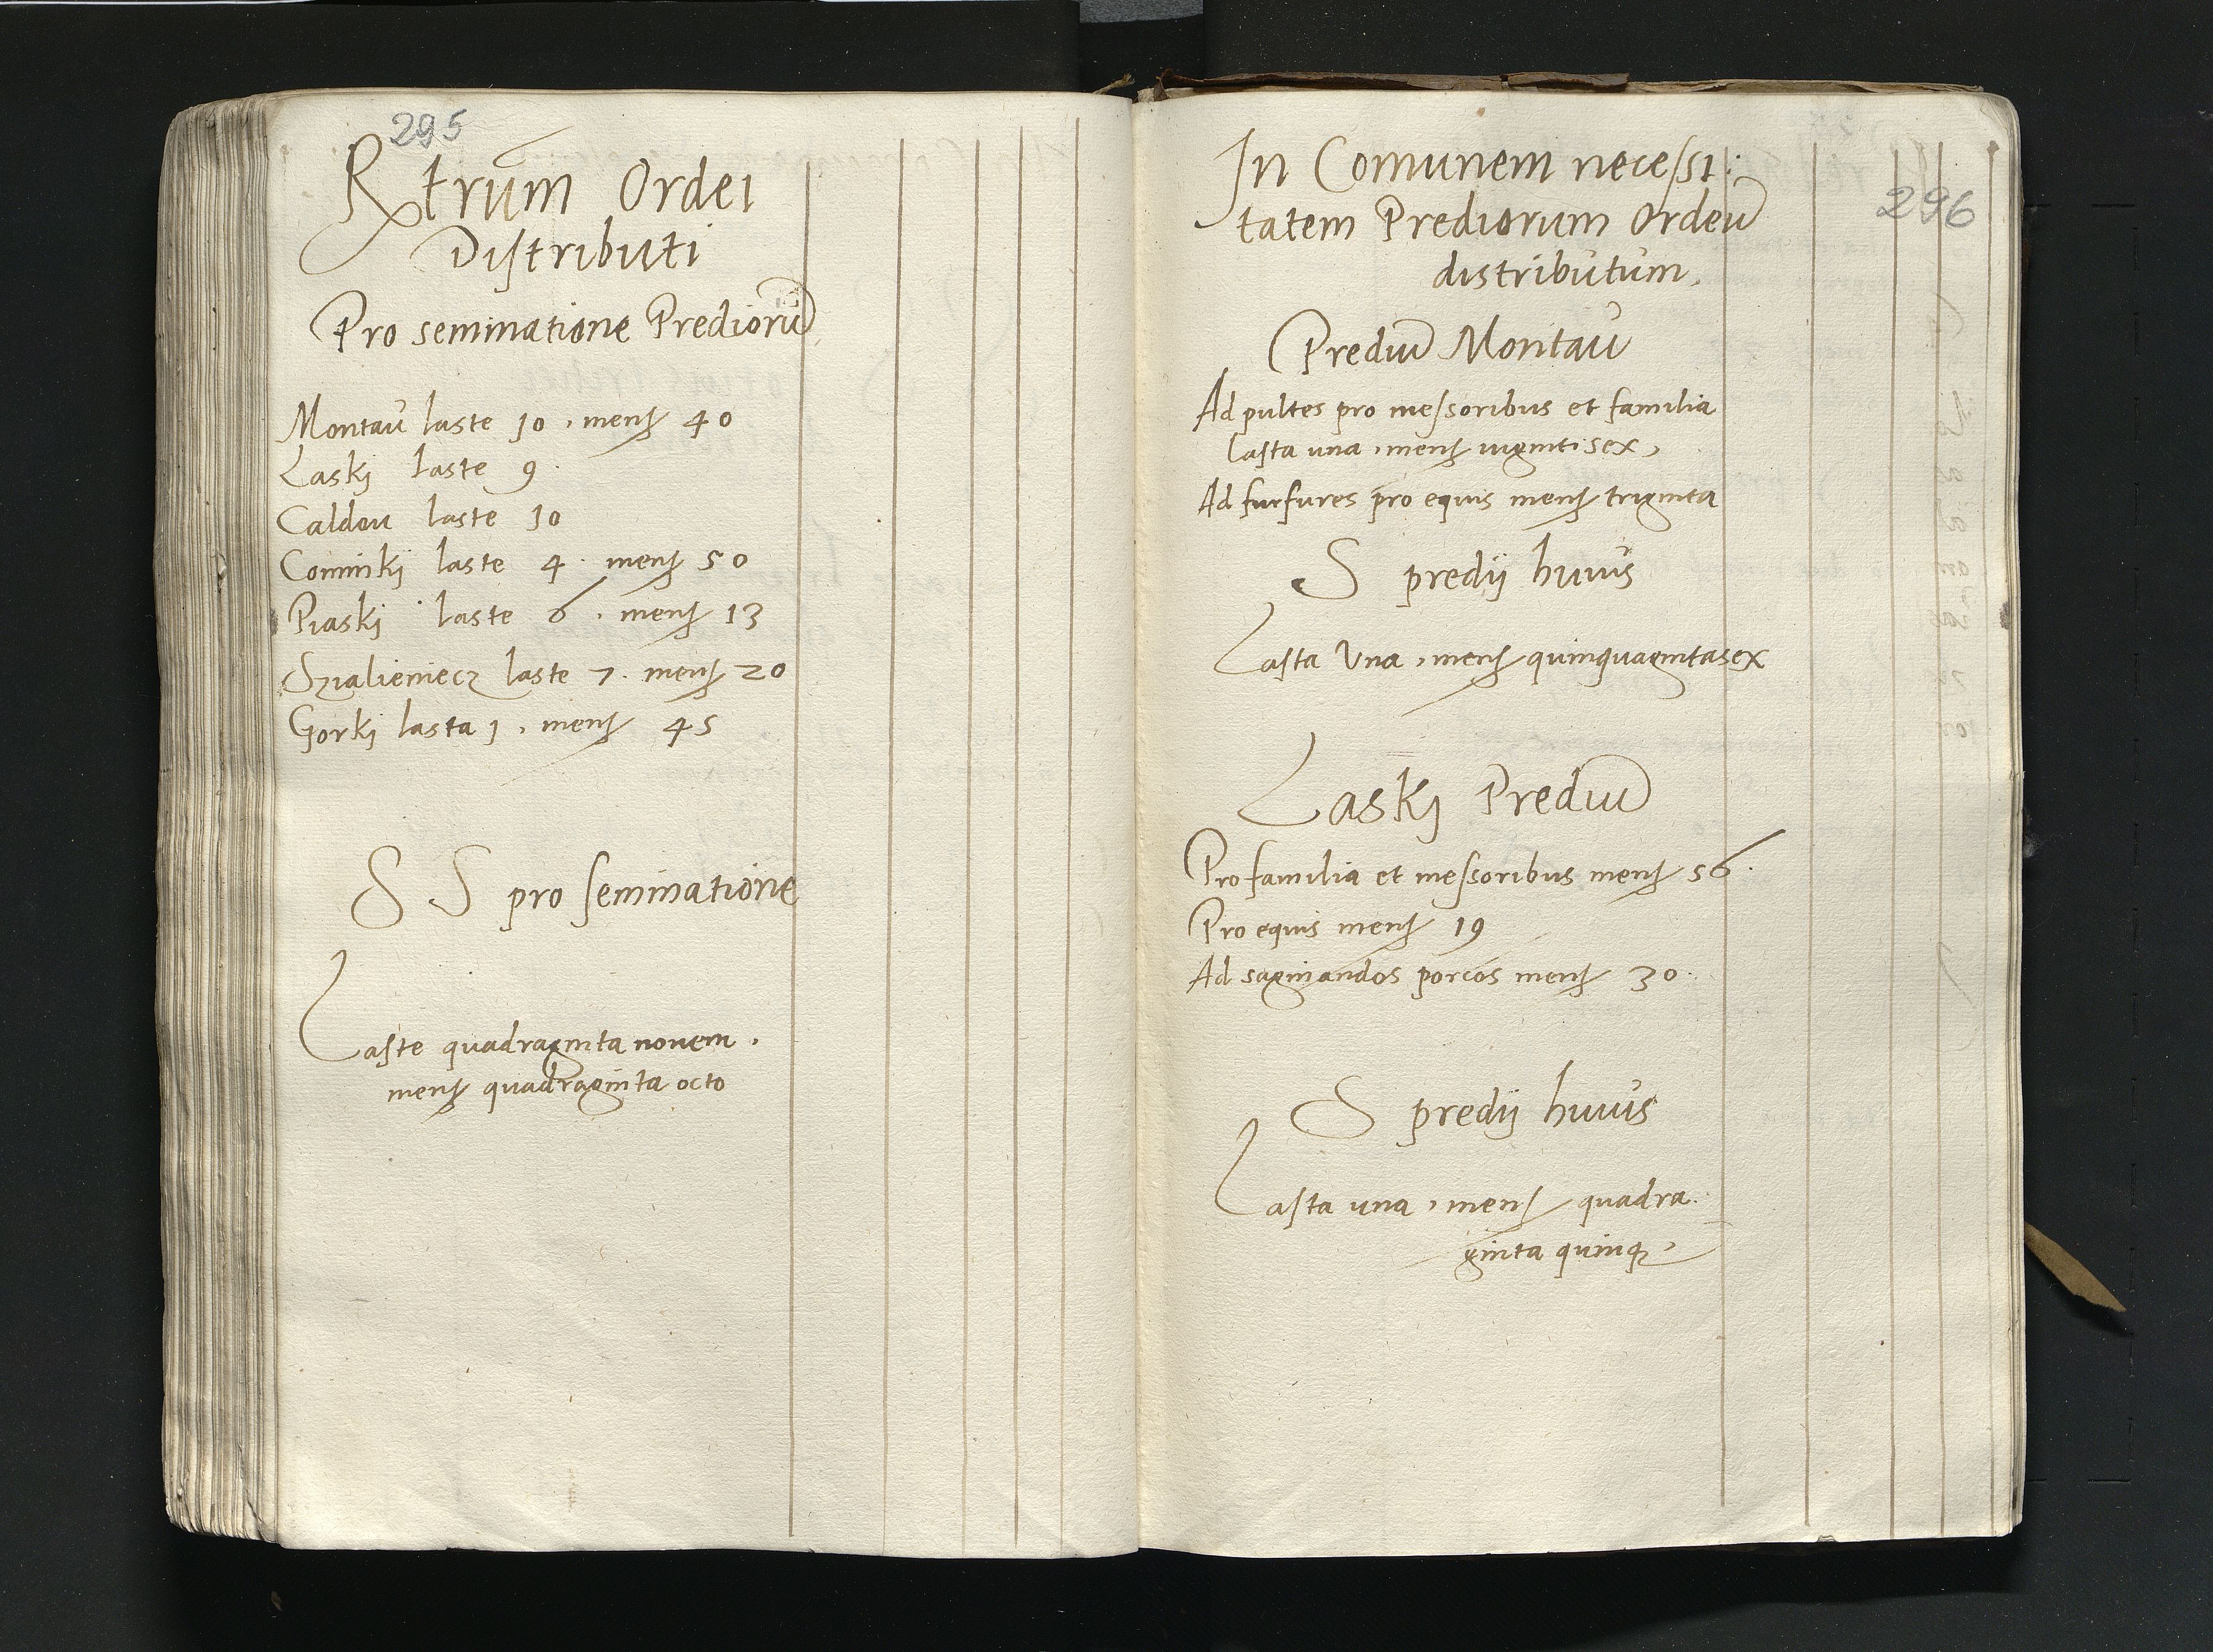 295
Rtrum Ordei
Distributi
Pro seminatione Prediorũ
Montau laste 10, mensʒ 40
Laskj laste 9.
Caldou laste 10
Cominkj laste 4. mensʒ 50
Piaskj laste 6. mensʒ 13
Szialieniecz laste 7. mensʒ 20
Gorkj lasta 1, mensʒ 45
S S pro seminatione
Laste quadraginta nouem,
mensʒ quadraginta octo
296
In Comunem necessi:
tatem Prediorum Ordeũ
distributum,
Prediũ Montau
Ad pultes pro messoribus et familia
lasta vna, mensʒ viginti sex,
Ad furfures pro equis mensʒ triginta
S predij huius
Lasta Vna, mensʒ quinquagintasex
Laskj Prediũ
Pro familia et messoribus mensʒ 56.
Pro equis mensʒ 19
Ad saginandos porcos mensʒ 30.
S predij huius
Lasta vna, mensʒ quadra.
ginta quinqʒ,